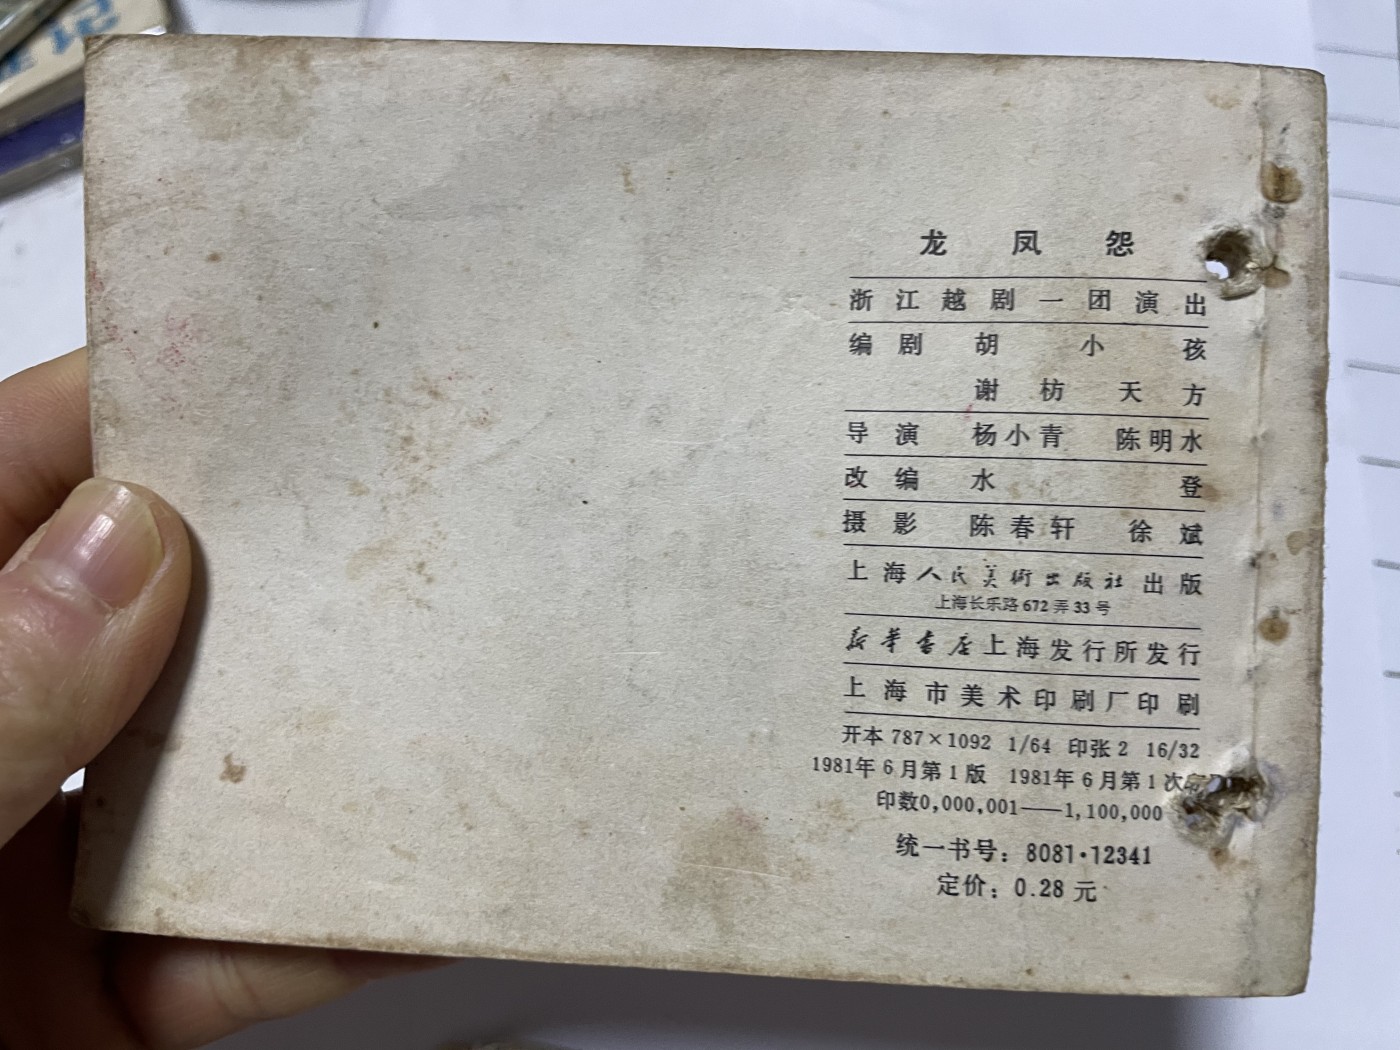 龙凤怨
浙江越剧一团演出
编剧 胡小孩
谢枋 天方
导演 杨小青 陈明水
改编 水登
摄影 陈春轩 徐斌
上海人民美術出版社出版
上海长乐路672弄33号
新华书店上海发行所发行
上海市美术印刷厂印刷
开本787×1092 1/64 印张2 16/32
1981年6月第1版 1981年6月第1次印
印数0,000,001——1,100,000
统一书号：8081·12341
定价：0.28元